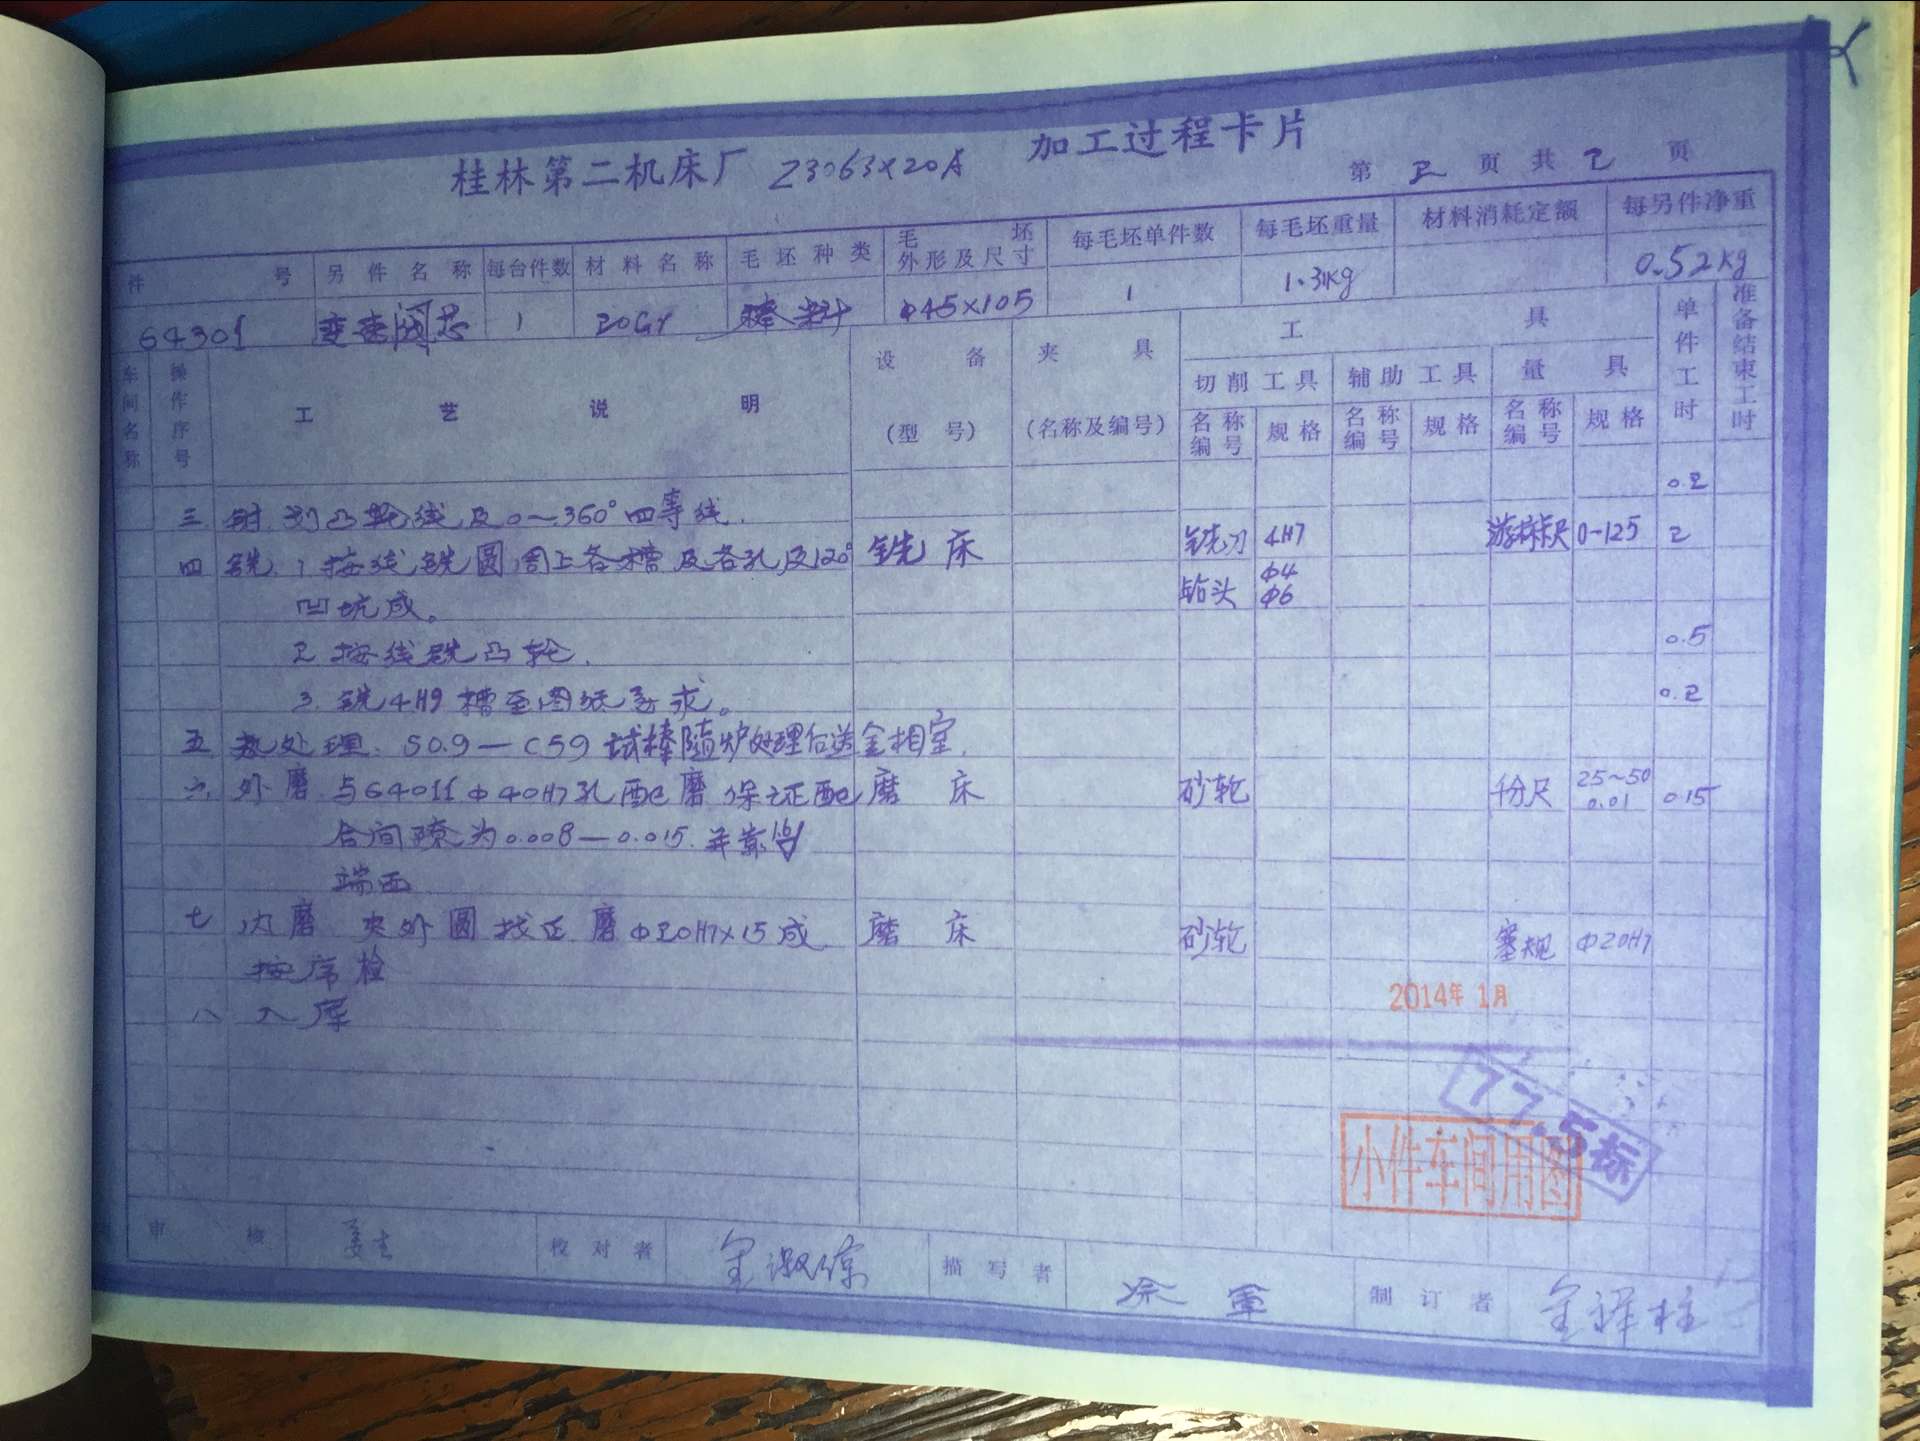 桂林第二机床厂 Z3063×20A 加工过程卡片
第 2 页 共 2 页
件号 另件名称 每台件数 材料名称 毛坯种类 毛坯外形及尺寸 每毛坯单件数 每毛坯重量 材料消耗定额 每另件净重
64301 变速阀芯 1 20Cr 棒料 Φ45×105 1 1.3kg 0.52kg
车间名称 操作序号 工艺说明 设备(型号) 夹具(名称及编号) 工具 单件工时 准备结束工时
切削工具 辅助工具 量具
名称编号 规格 名称编号 规格 名称编号 规格
三 钳. 划凸轮线及0~360°四等线. 0.2
四 铣. 1 按线铣圆周上各槽及各孔及120° 铣床 铣刀 4H7 游标卡尺 0-125 2
凹坑成。 钻头 Φ4 Φ6
2 按线铣凸轮. 0.5
3. 铣4H9槽至图纸要求。 0.2
五 热处理. S0.9—C59 试棒随炉处理后送金相室.
六. 外磨 与64011 Φ40H7孔配磨 保证配 磨床 砂轮 千分尺 25~50 0.01 0.15
合间隙为0.008—0.015. 并靠
端面
七 内磨 夹外圆找正 磨Φ20H7×15成 磨床 砂轮 塞规 Φ20H7
按序检
八 入库
2014年 1月
77.5标
小件车间用图
审核 校对者 描写者 制订者